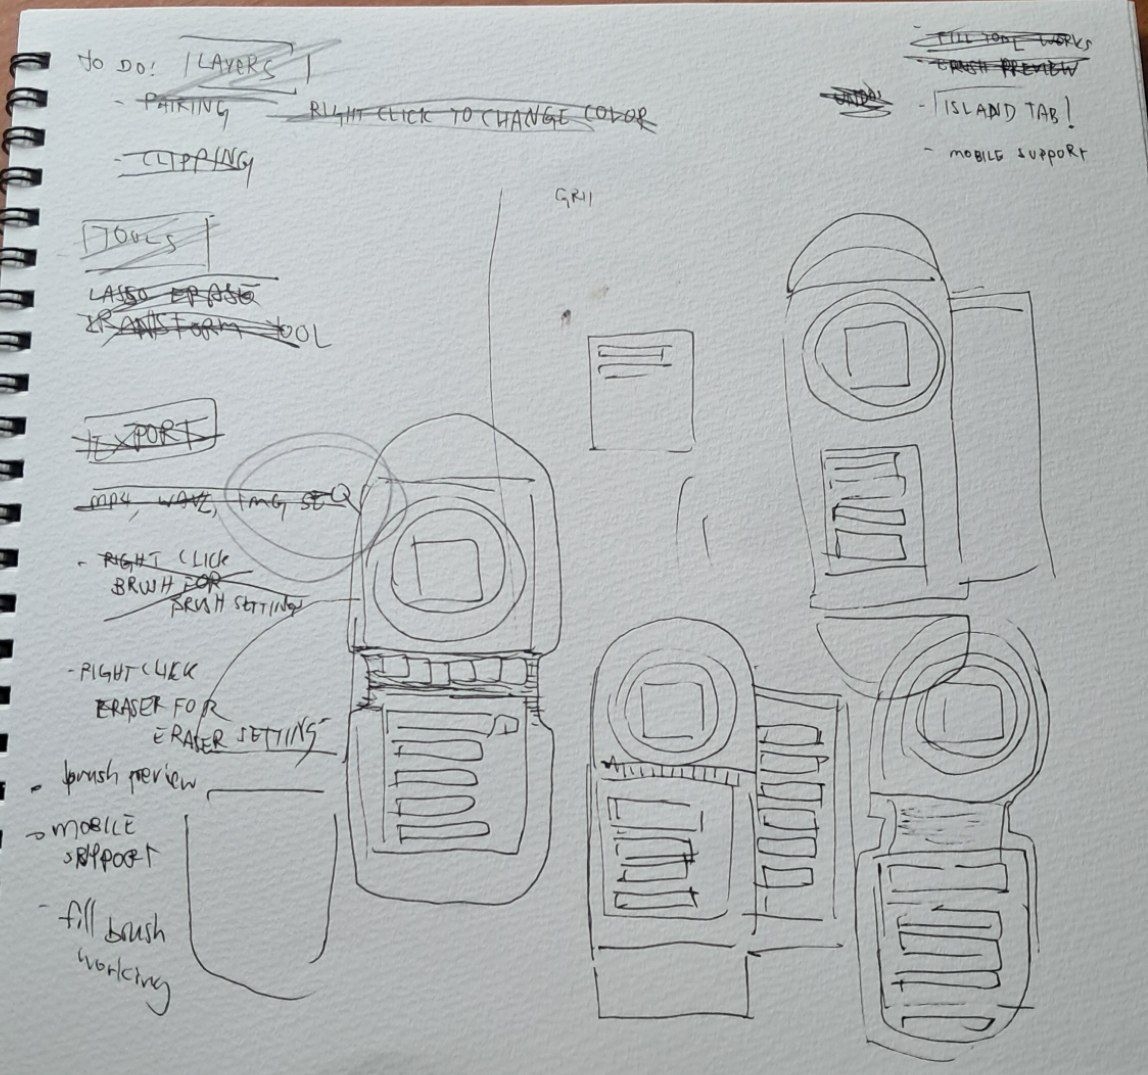 TO DO! LAYERS
- PAIRING
- RIGHT CLICK TO CHANGE COLOR
- CLIPPING
TOOLS
LASSO ERASE
TRANSFORM TOOL
EXPORT
MP4, WAVE, IMG SEQ
- RIGHT CLICK
BRUSH FOR
BRUSH SETTING
- RIGHT CLICK
ERASER FOR
ERASER SETTING
- brush preview
- MOBILE
SUPPORT
- fill brush
working
- FILL TOOL WORKS
- BRUSH PREVIEW
UNDO!
- ISLAND TAB!
- MOBILE SUPPORT